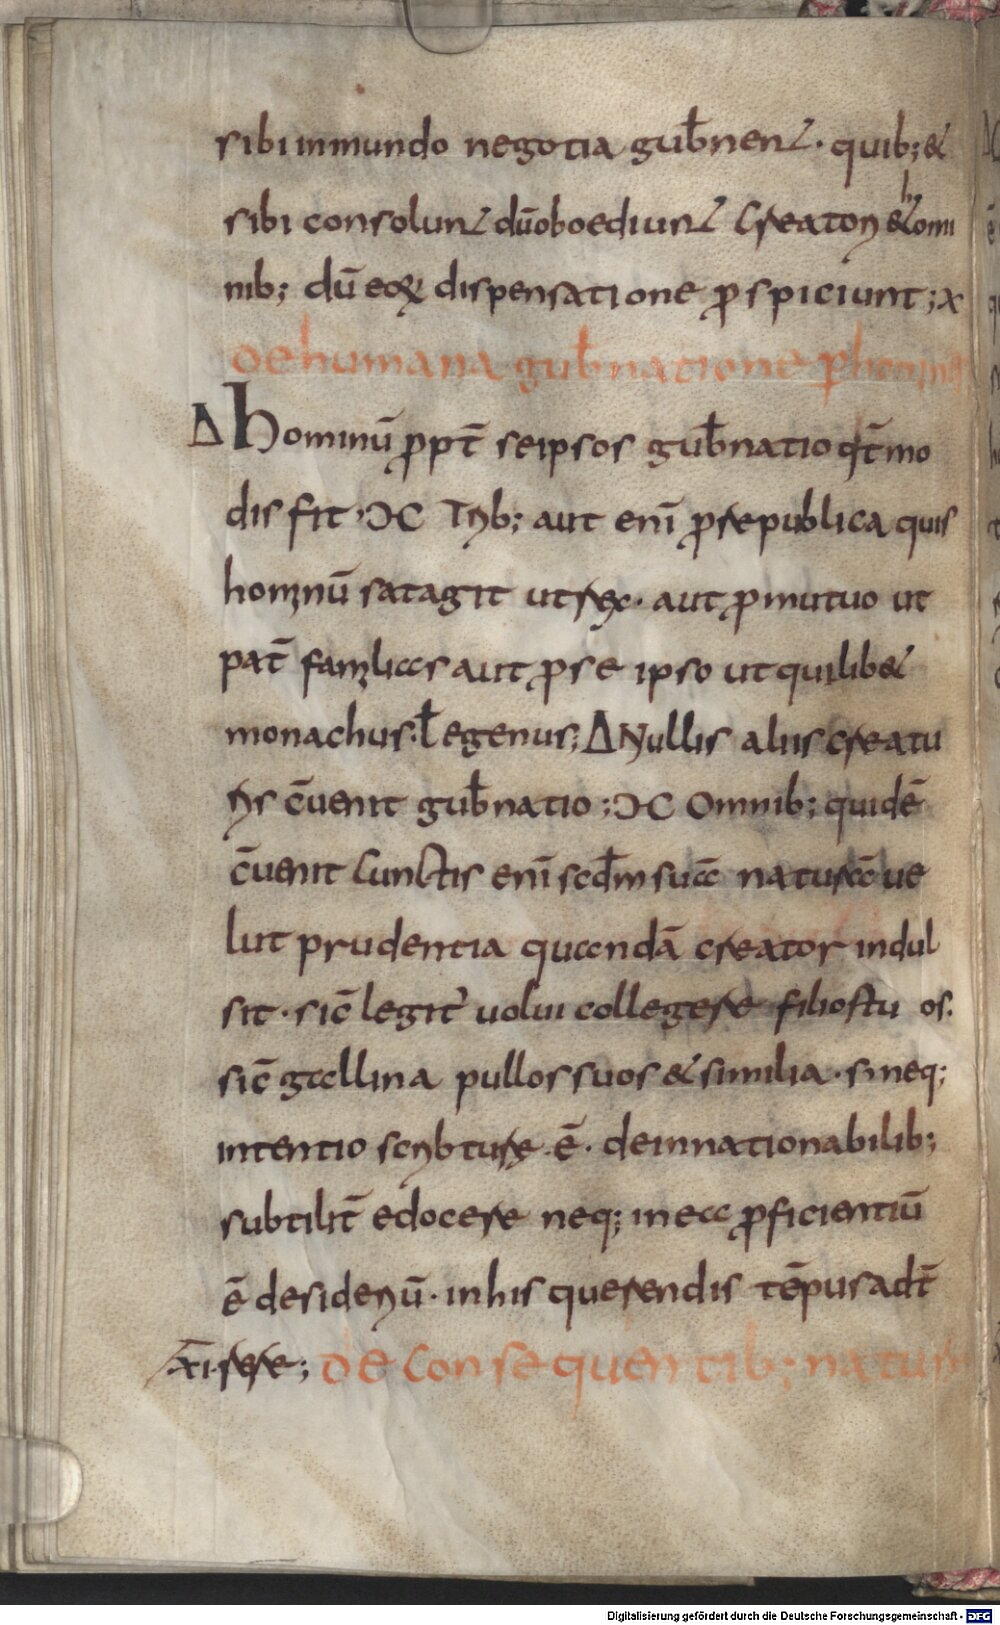 sibi inmundo negotia gub̄nent. quib; &
sibi consolunt dūoboediunt Creatori & homi
nib; dū eoꝝ dispensatione ꝓspiciunt; x
De humana gub̄natione
Δ Hominū ꝓpt̄ seipsos gub̄natio qt̄ mo
dis fit; ƆC Trib; aut enī ꝓ republica quis
hominū satagit ut rex. aut ꝓ mutuo ut
pat̄ familias aut ꝓ se ipso ut quilib&
monachus. ł egenus; Δ Nullis aliis creatu
ris c̄uenit gub̄natio; ƆC Omnib; quidē
c̄uenit Cunctis enī scd̄m suā naturā ue
lut prudentia quandā creator indul
sit. sic̄ legit̄ uolui collegere filios tuos.
sic̄ gallina pullos suos & similia. sineq;
intentio scribture .ē. deinnationabilib;
subtilit̄ edocere neq; in ea ꝓficientiū
ē desideriū. inhis querendis tēpus adt̄
.x̄i. rere; De Consequentib; natur
Digitalisierung gefördert durch die Deutsche Forschungsgemeinschaft - DFG